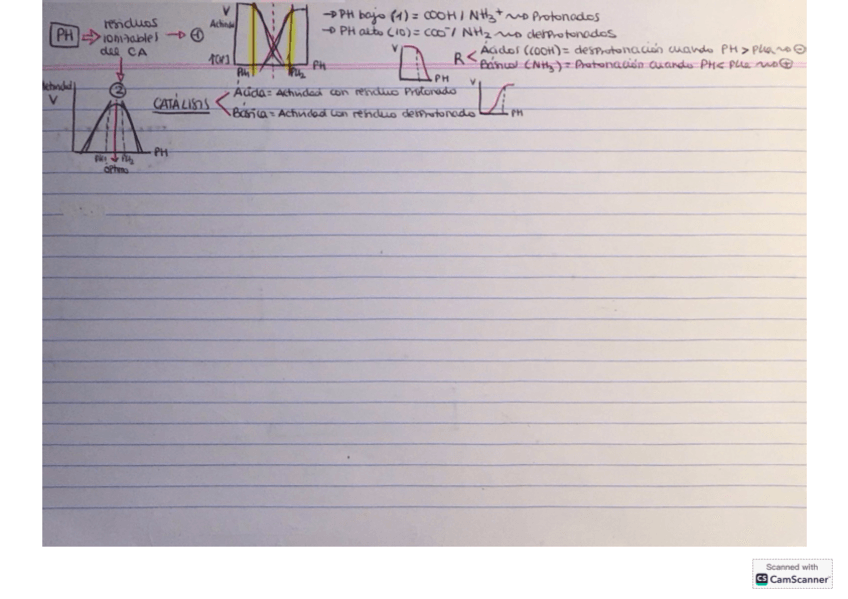 PH ⇒ residuos ionizables del CA → ①
V
Actividad
PH1 PH2 PH
→ PH bajo (1) = COOH / NH3+ ~> Protonados
→ PH alto (10) = COO- / NH2 ~> desprotonados
V
PH
R < Ácidos (COOH) = desprotonación cuando PH > pKa ~> ⊖
Básicos (NH3) = Protonación cuando PH < pKa ~> ⊕
②
Actividad
V
PH1 PH2 PH
óptimo
CATÁLISIS < Ácida = Actividad con residuo Protonado
Básica = Actividad con residuo desprotonado
V
PH
Scanned with
CS CamScanner